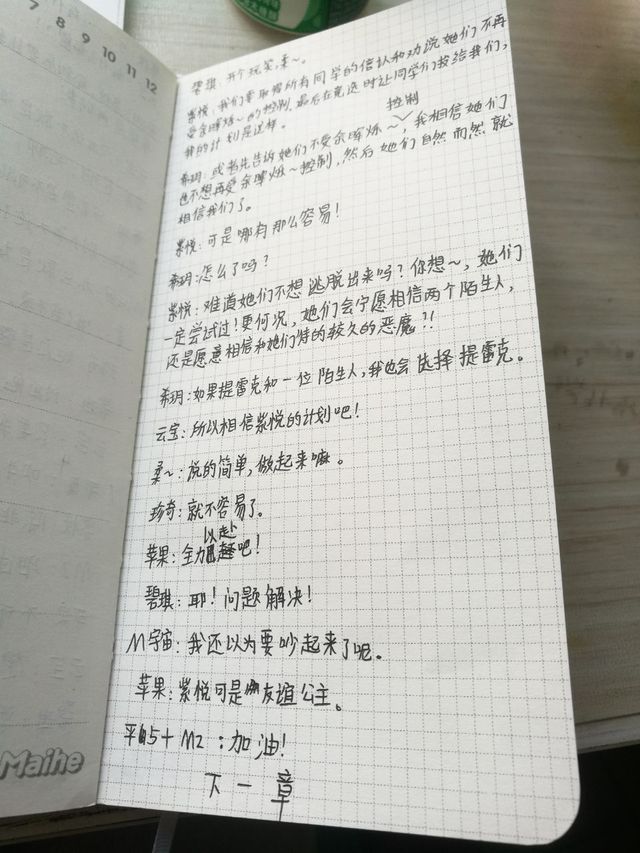 7 8 9 10 11 12
碧琪：开个玩笑，柔~。
紫悦：我们要取得所有同学的信认和劝说她们不再
受余晖烁~的控制，最后在竞选时让同学们投给我们，
我的计划是这样。
希玥：或者先告诉她们不要余晖烁~控制，我相信她们
也不想再受余晖烁~控制，然后她们自然而然就
相信我们了。
紫悦：可是哪有那么容易！
希玥：怎么了吗？
紫悦：难道她们不想逃脱出来吗？你想~，她们
一定尝试过！更何况，她们会宁愿相信两个陌生人，
还是愿意相信和她们待的较久的恶魔？！
希玥：如果提雷克和一位陌生人，我也会选择提雷克。
云宝：所以相信紫悦的计划吧！
柔~：说的简单，做起来嘛。
珍奇：就不容易了。
苹果：全力以赴吧！
碧琪：耶！问题解决！
M宇宙：我还以为要吵起来了呢。
苹果：紫悦可是友谊公主。
平的5+M2：加油！
下一章
Maihe